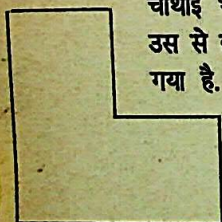 चौथाई
उस से
गया है.